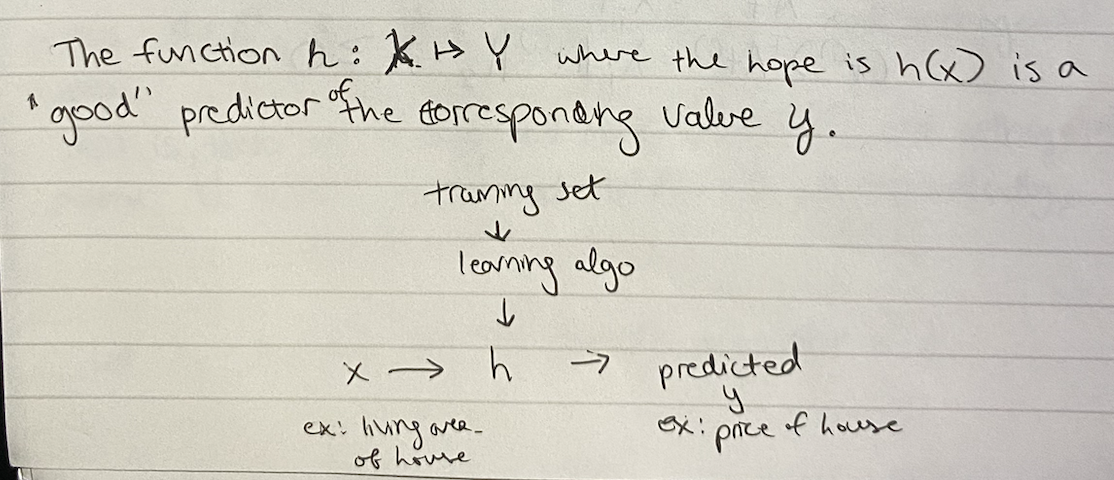 The function h : X ↦ Y where the hope is h(x) is a
"good" predictor of the corresponding value y.
training set
↓
learning algo
↓
x → h → predicted
y
ex: living area
of house
ex: price of house